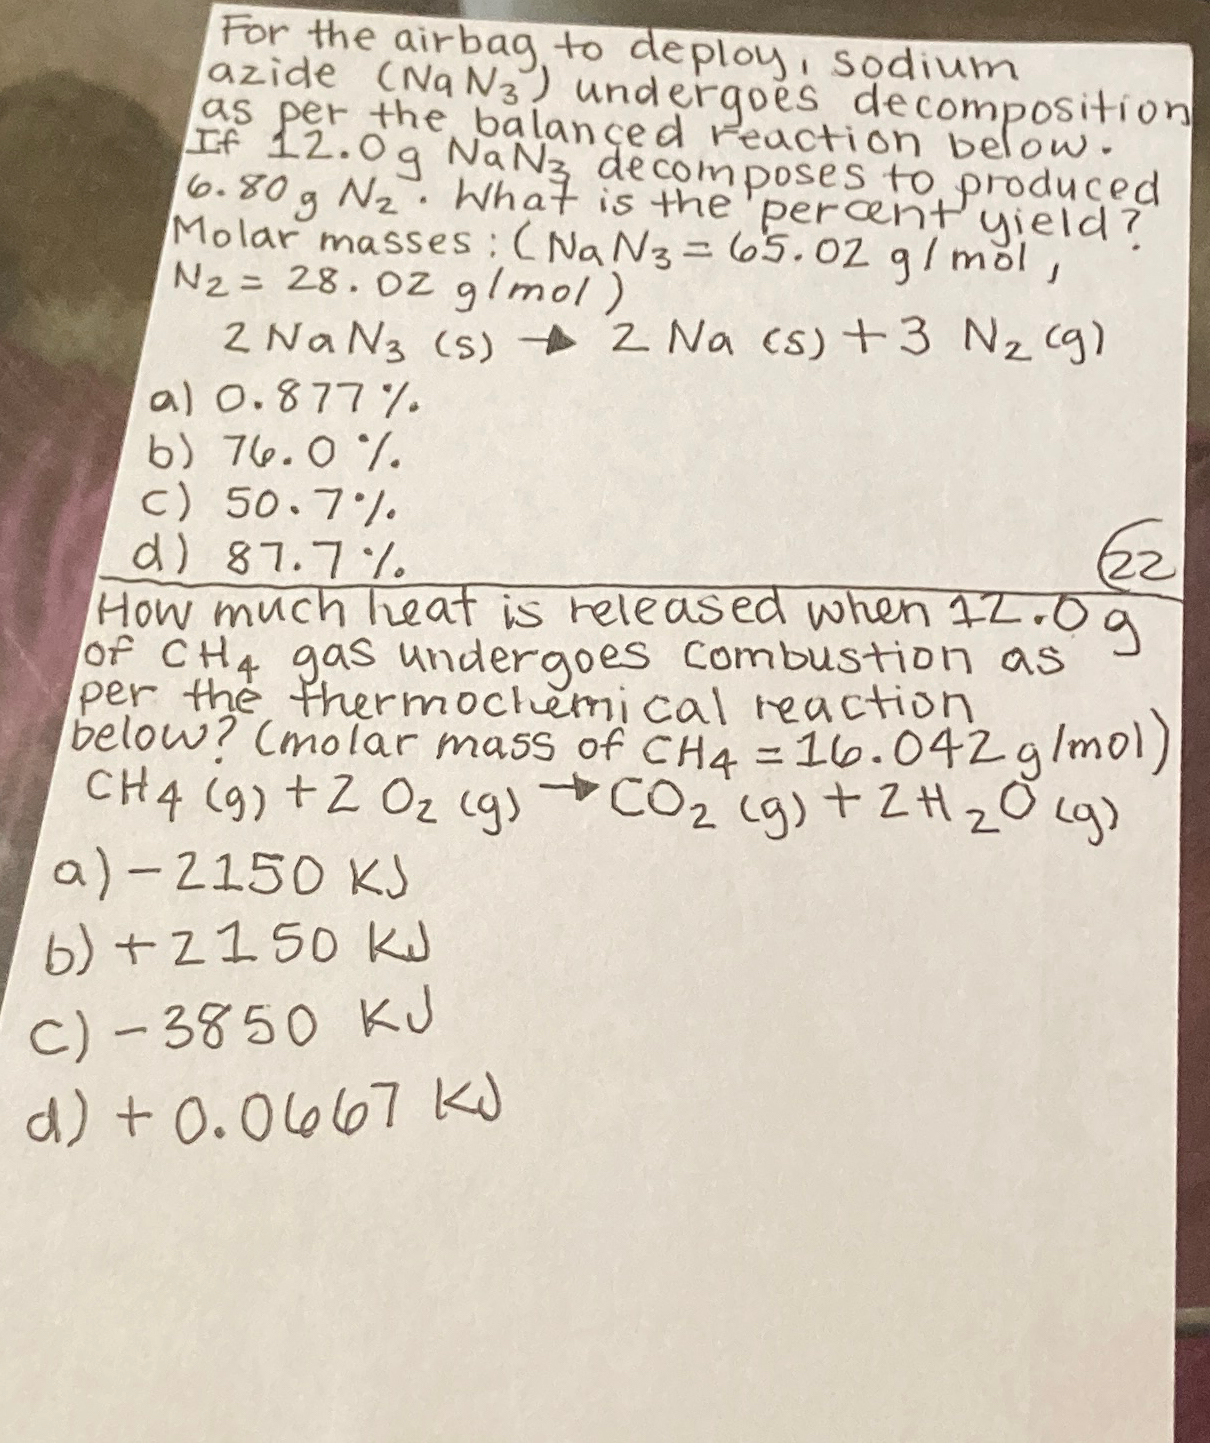 For the airbag to deploy, sodium
azide (NaN₃) undergoes decomposition
as per the balanced reaction below.
If 12.0g NaN₃ decomposes to produced
6.80g N₂. What is the percent yield?
Molar masses: (NaN₃ = 65.02 g/mol,
N₂ = 28.02 g/mol)
2 NaN₃ (s) → 2 Na (s) + 3 N₂ (g)
a) 0.877%
b) 76.0%
c) 50.7%
d) 87.7%
22
How much heat is released when 12.0g
of CH₄ gas undergoes combustion as
per the thermochemical reaction
below? (molar mass of CH₄ = 16.042 g/mol)
CH₄ (g) + 2 O₂ (g) → CO₂ (g) + 2H₂O (g)
a) -2150 KJ
b) +2150 KJ
c) -3850 KJ
d) +0.0667 KJ